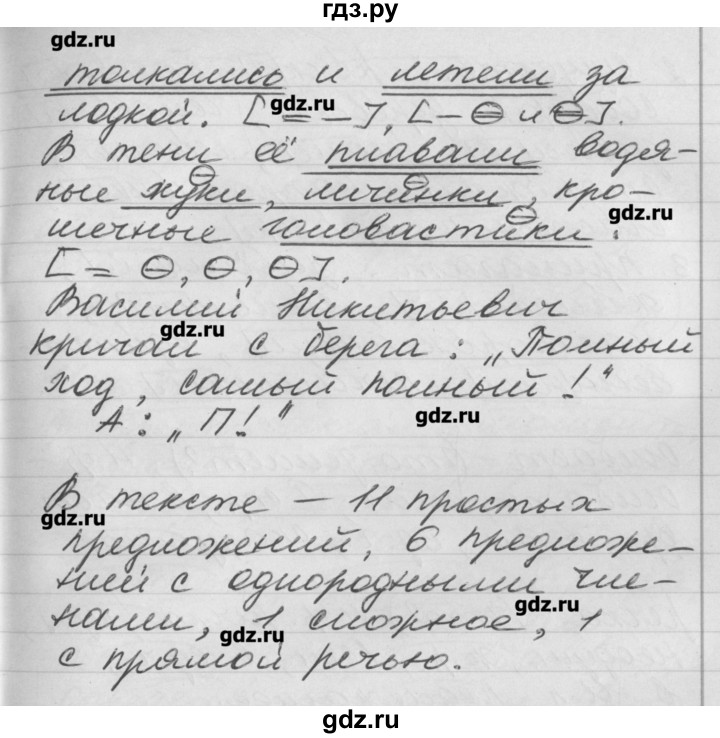 гдз.ру
gdz.ru
толкались и летели за
лодкой. [= –], [– ⊖ и ⊖].
gdz.ru
В тени её плавали водя-
ные жуки, личинки, кро-
gdz.ru
шечные головастики.
[= ⊖, ⊖, ⊖].
Василий Никитьевич
gdz.ru
кричал с берега: „Полный
ход, самый полный!“
А: „П!“
gdz.ru
В тексте – 11 простых
gdz.ru
предложений, 6 предложе-
ний с однородными чле-
gdz.ru
нами, 1 сложное, 1
gdz.ru
с прямой речью.
gdz.ru